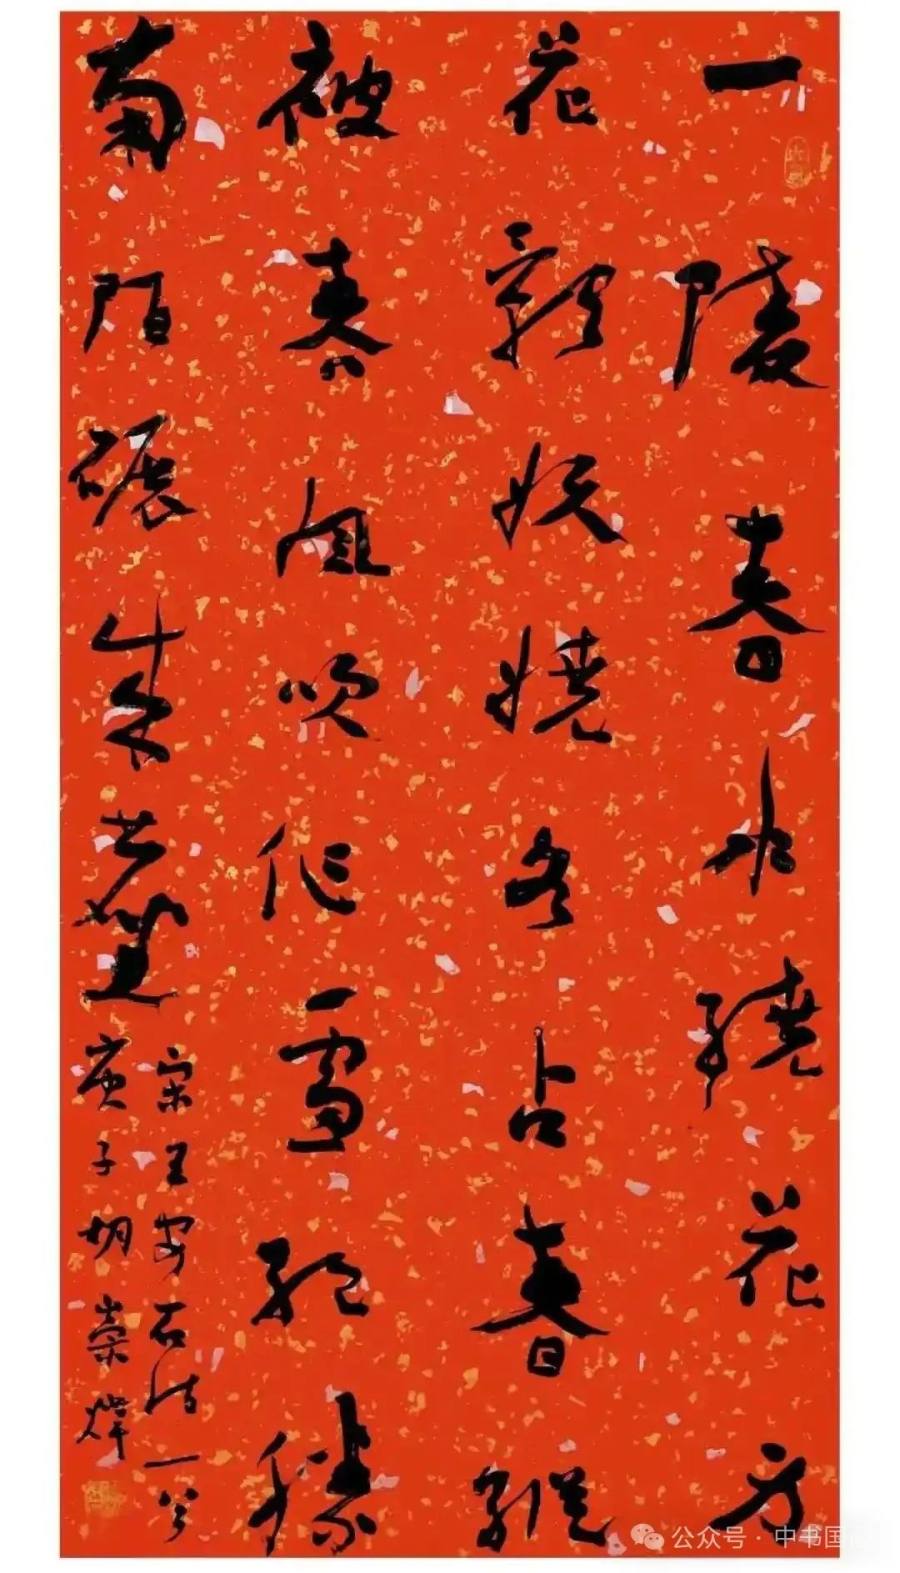 一陂春水繞花身
花影妖嬈各占春縱
被春風吹作雪絕勝
南陌碾成塵
宋王安石诗一首
庚子胡崇煒
公众号 · 中书国